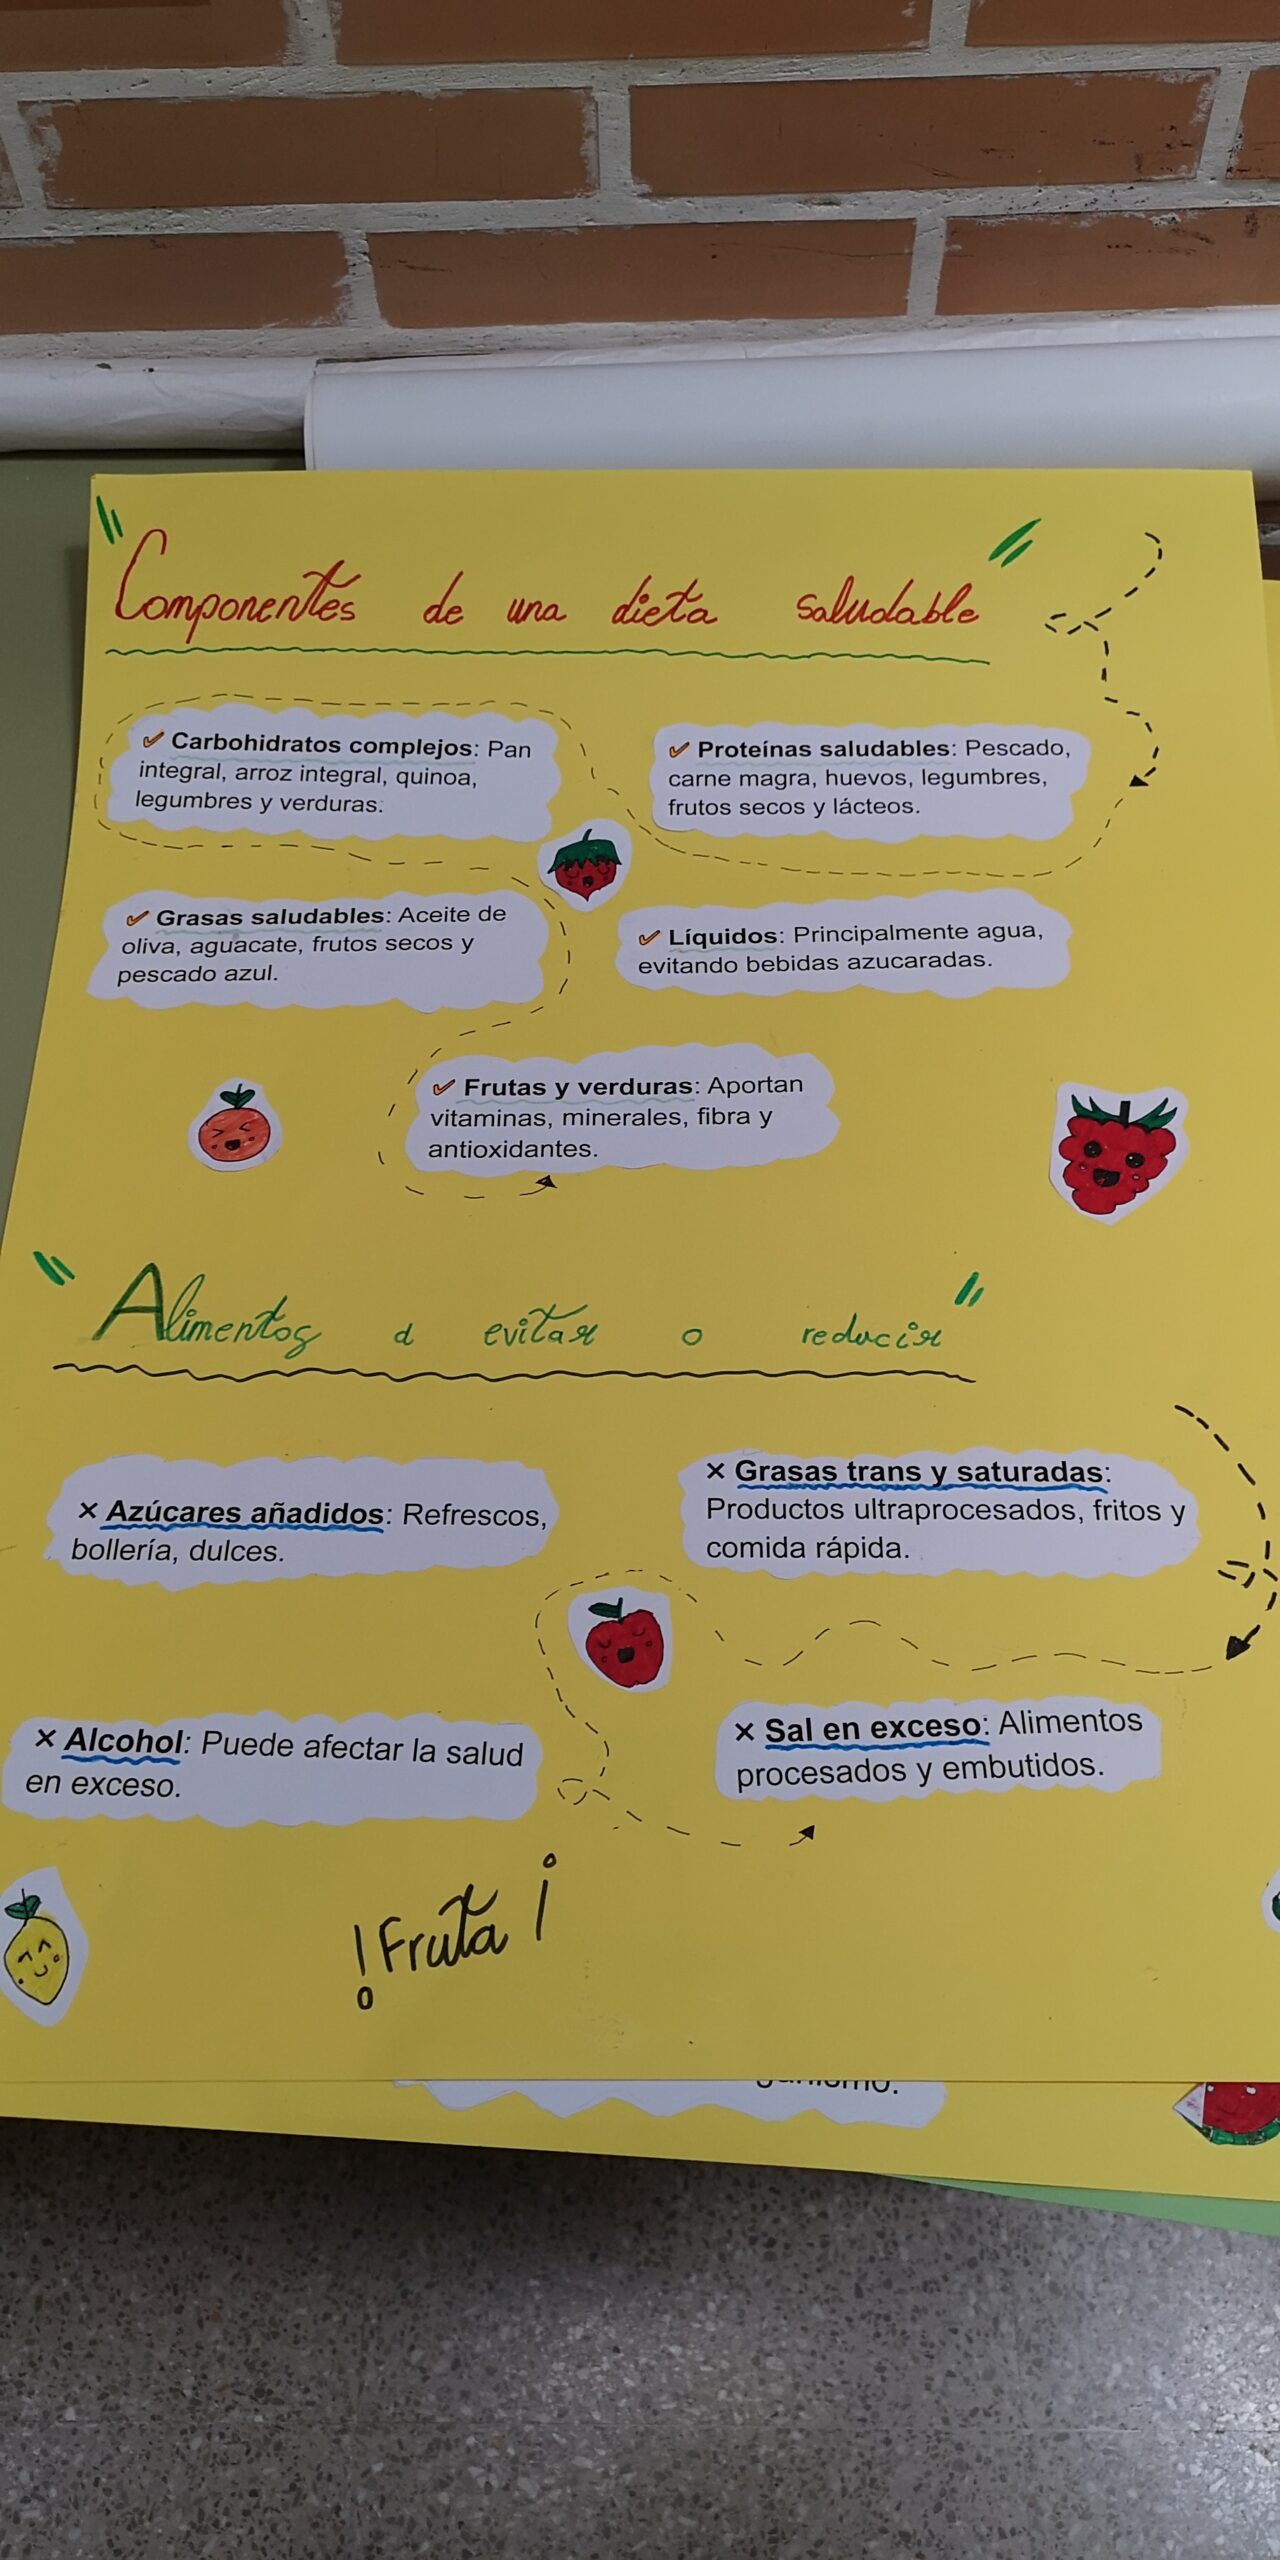 "Componentes de una dieta saludable"
✔ Carbohidratos complejos: Pan
integral, arroz integral, quinoa,
legumbres y verduras.
✔ Proteínas saludables: Pescado,
carne magra, huevos, legumbres,
frutos secos y lácteos.
✔ Grasas saludables: Aceite de
oliva, aguacate, frutos secos y
pescado azul.
✔ Líquidos: Principalmente agua,
evitando bebidas azucaradas.
✔ Frutas y verduras: Aportan
vitaminas, minerales, fibra y
antioxidantes.
"Alimentos a evitar o reducir"
✕ Azúcares añadidos: Refrescos,
bollería, dulces.
✕ Grasas trans y saturadas:
Productos ultraprocesados, fritos y
comida rápida.
✕ Alcohol: Puede afectar la salud
en exceso.
✕ Sal en exceso: Alimentos
procesados y embutidos.
!Fruta¡